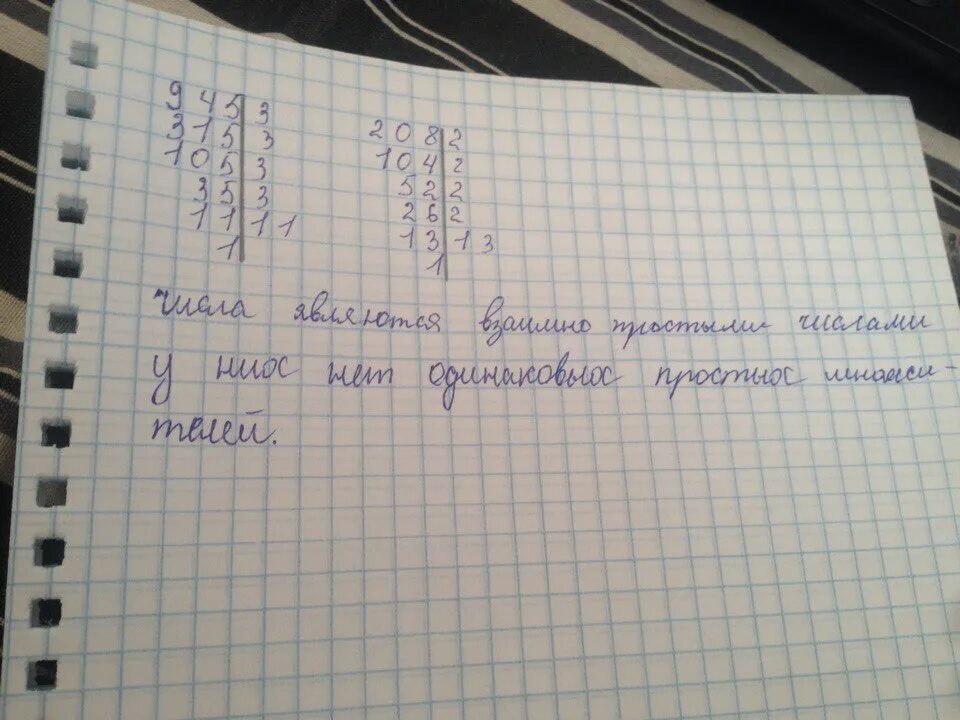 945|3
315|3
105|3
35|3
11|11
1|
208|2
104|2
52|2
26|2
13|13
1|
Числа являются взаимно простыми числами
у них нет одинаковых простых множи-
телей.